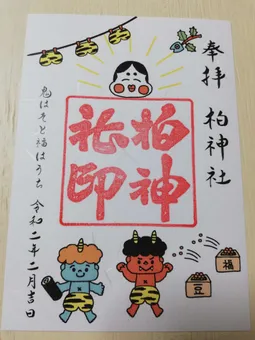 奉拝
柏神社
柏神社印
鬼はそと福はうち
令和二年二月吉日
福
豆